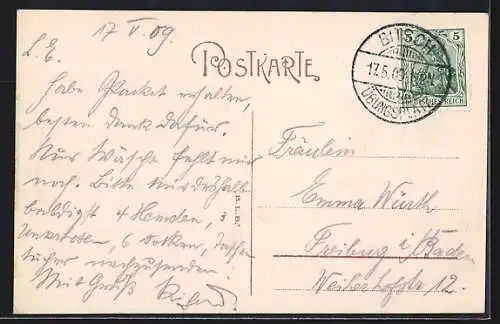 17 V 09.
L. E.
habe Packet erhalten,
besten Dank dafür.
Nur Wäsche fehlt mir
noch. Bitte mir deshalb
baldigst 4 Hemden, 3
6 Socken, Taschen
tücher nachzusenden.
Mit Gruß
POSTKARTE
BITSCH
17.5.09
ÜBUNGSPLATZ
5
DEUTSCHES REICH
Fräulein
Emma Wurth
Freiburg i/Baden
Weiherhofstr 12.